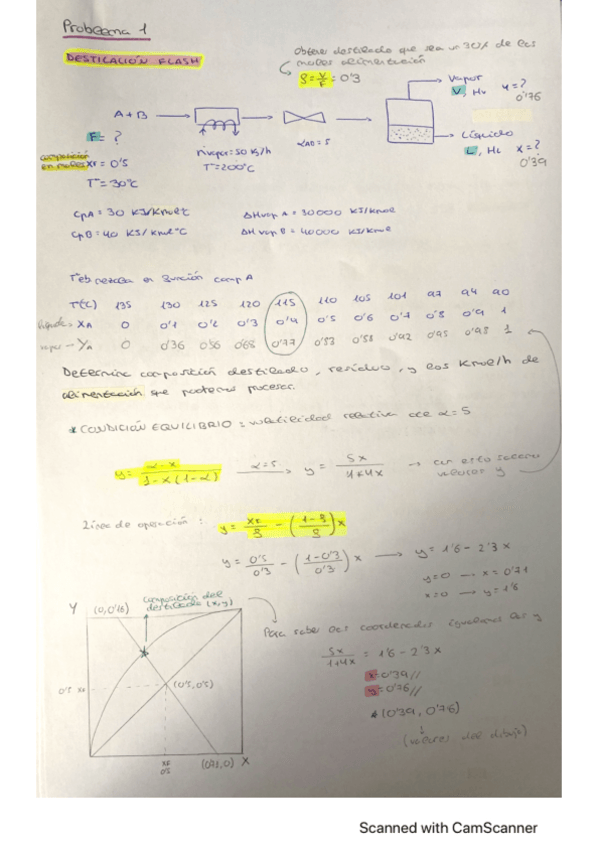 Problema 1
DESTILACIÓN FLASH
Obtener destilado que sea un 30% de los
moles alimentación
S = V/F = 0'3
Vapor
V, Hv y = ?
0'76
A + B
F = ?
composición
en moles XF = 0'5
T = 30°C
mvapor = 50 Kg/h
T = 200°C
αAB = 5
Líquido
L, HL x = ?
0'39
CpA = 30 KJ/Kmol°C ΔHvap A = 30000 KJ/Kmol
CpB = 40 KJ/Kmol°C ΔHvap B = 40000 KJ/Kmol
Teb mezcla en función comp A
T(°C) 135 130 125 120 115 110 105 101 97 94 90
líquido → XA 0 0'1 0'2 0'3 0'4 0'5 0'6 0'7 0'8 0'9 1
vapor → YA 0 0'36 0'56 0'68 0'77 0'83 0'88 0'92 0'95 0'98 1
Determina composición destilado, residuo, y los Kmol/h de
alimentación que podemos procesar.
* CONDICIÓN EQUILIBRIO = volatilidad relativa de α = 5
y = α·x / 1-x(1-α) α=5 → y = 5x / 1+4x → con esto sacamos
valores y
Línea de operación : y = XF/S - (1-S/S) x
y = 0'5/0'3 - (1-0'3/0'3) x → y = 1'6 - 2'3 x
y=0 → x = 0'71
x=0 → y = 1'6
composición del
destilado (x,y)
Y (0,0'16)
Para saber las coordenadas igualamos las y
5x / 1+4x = 1'6 - 2'3 x
x=0'39//
y=0'76//
* (0'39, 0'76)
(valores del dibujo)
0'5 XF
(0'5, 0'5)
XF
0'5
(0'71, 0) X
Scanned with CamScanner